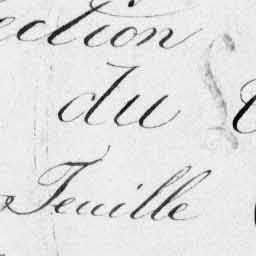 ection
du
Feuille